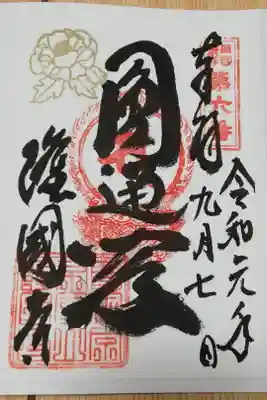 第六番
奉拝
令和元年
九月七日
圓通殿
隆國寺